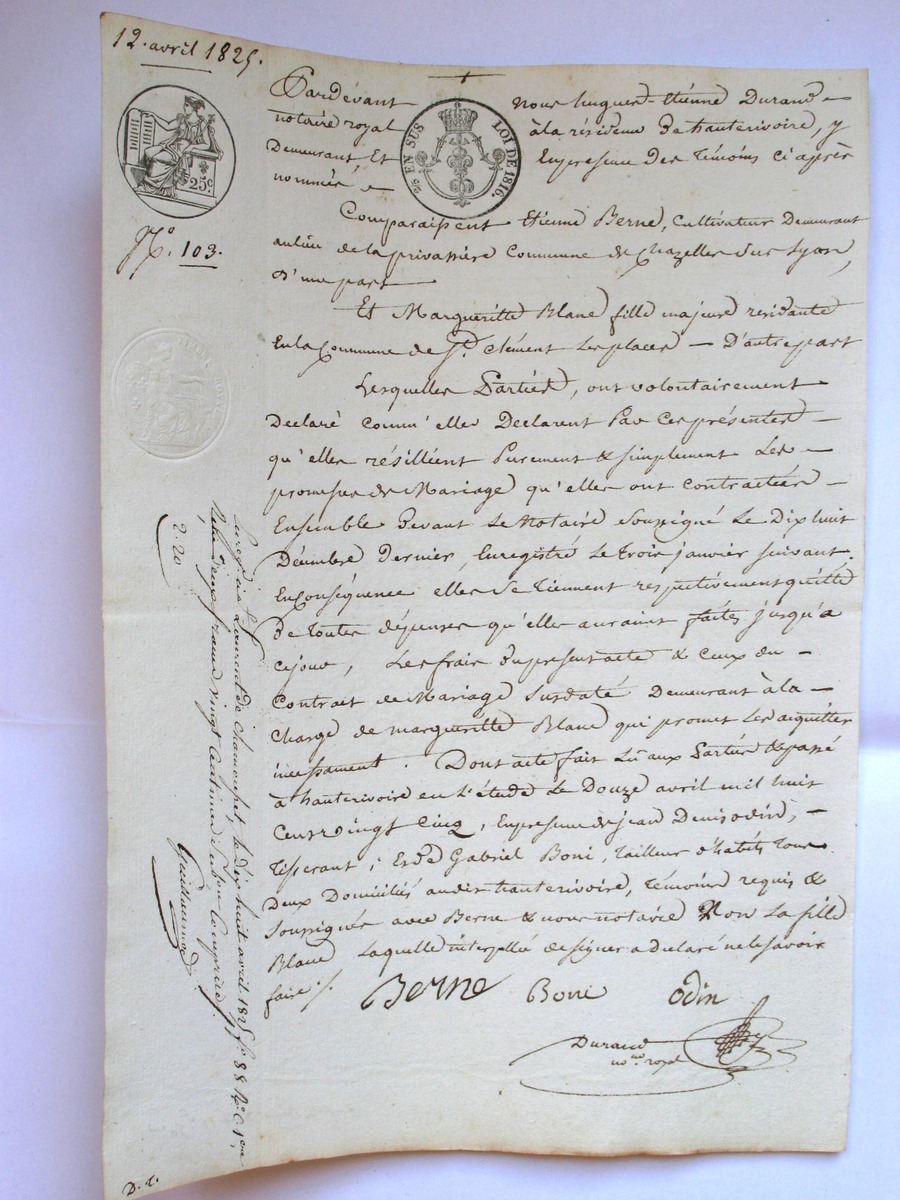 12. avril 1825.
Pardevant Nous hugues-Etienne Durand
notaire royal à la résidence de hauterivoire, y
Demeurant Et En présence des témoins ci après
nommés
EN SUS LOI DE 1816.
25 c.
N.º 103.
Comparaissent Etienne Berne, Cultivateur Demeurant
au lieu de la privassière Commune de Chazelles sur Lyon,
d'une part
Et Margueritte Blanc fille majeure residante
En la Commune de St. Clément les places — D'autre part
Lesquelles Parties, ont volontairement
Déclaré comm'elles Déclarent Par Ces présentes
qu'elles résillient Purement & simplement Les
promesses de Mariage qu'elles ont contractées
Ensemble devant Le Notaire soussigné Le Dix huit
Décembre Dernier, Enregistré Le trois janvier suivant.
En Conséquence elles se tiennent respectivement quitte
de toutes dépenses qu'elles auraint faites jusqu'a
ce jour, Les frais du présent acte & ceux du
Contrat de Mariage susdaté Demeurant à la
charge de margueritte Blanc qui promet Les acquitter
incessament. Dont acte fait Lû aux Parties & passé
à hauterivoire en L'étude Le Douze avril mil huit
Cent vingt Cinq, En présence de jean Denis odin,
tisserant, Et de Gabriel Boni, tailleur d'habits tous
Deux Domiciliés audit hauterivoire, témoins requis &
soussignés avec Berne & nous notaire Non La fille
Blanc Laquelle interpellée de signer a déclaré ne le savoir
faire ./.
Berne Boni Odin
Durand
not.re royal
Enregistré à St Laurent de chamousset, le dix huit avril 1825 f.º 88 R.º C 1.ere
Reçu deux francs vingt centimes decime compris
2.20
D. t.